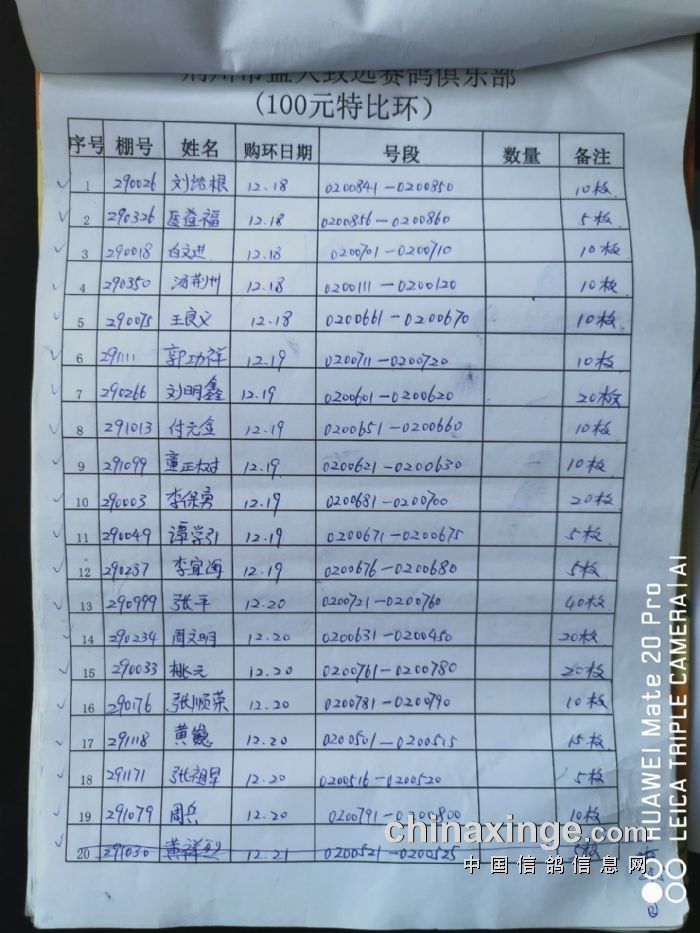 荆州市蓝天致远赛鸽俱乐部
(100元特比环)
序号 棚号 姓名 购环日期 号段 数量 备注
1 290026 刘浩根 12.18 0200841-0200850 10枚
2 290326 益福 12.18 0200856-0200860 5枚
3 290018 白文进 12.18 0200701-0200710 10枚
4 290350 汤荆州 12.18 0200111-0200120 10枚
5 290075 王良义 12.18 0200661-0200670 10枚
6 291111 郭功祥 12.19 0200711-0200720 10枚
7 290266 刘明鑫 12.19 0200601-0200620 20枚
8 291013 付元金 12.19 0200651-0200660 10枚
9 291099 童正树 12.19 0200621-0200630 10枚
10 290003 李保勇 12.19 0200681-0200700 20枚
11 290049 谭学引 12.19 0200671-0200675 5枚
12 290237 李宜海 12.19 0200676-0200680 5枚
13 290999 张平 12.20 0200721-0200760 40枚
14 290234 周文明 12.20 0200631-0200450 20枚
15 290033 桃元 12.20 0200761-0200780 20枚
16 290176 张顺荣 12.20 0200781-0200790 10枚
17 291118 黄巍 12.20 0200501-0200515 15枚
18 291171 张祖早 12.20 0200516-0200520 5枚
19 291079 周兵 12.20 0200791-0200800 10枚
20 291030 黄祥烈 12.21 0200521-0200525 5枚
chinaxinge.com
中国信鸽信息网
HUAWEI Mate 20 Pro
LEICA TRIPLE CAMERA | AI